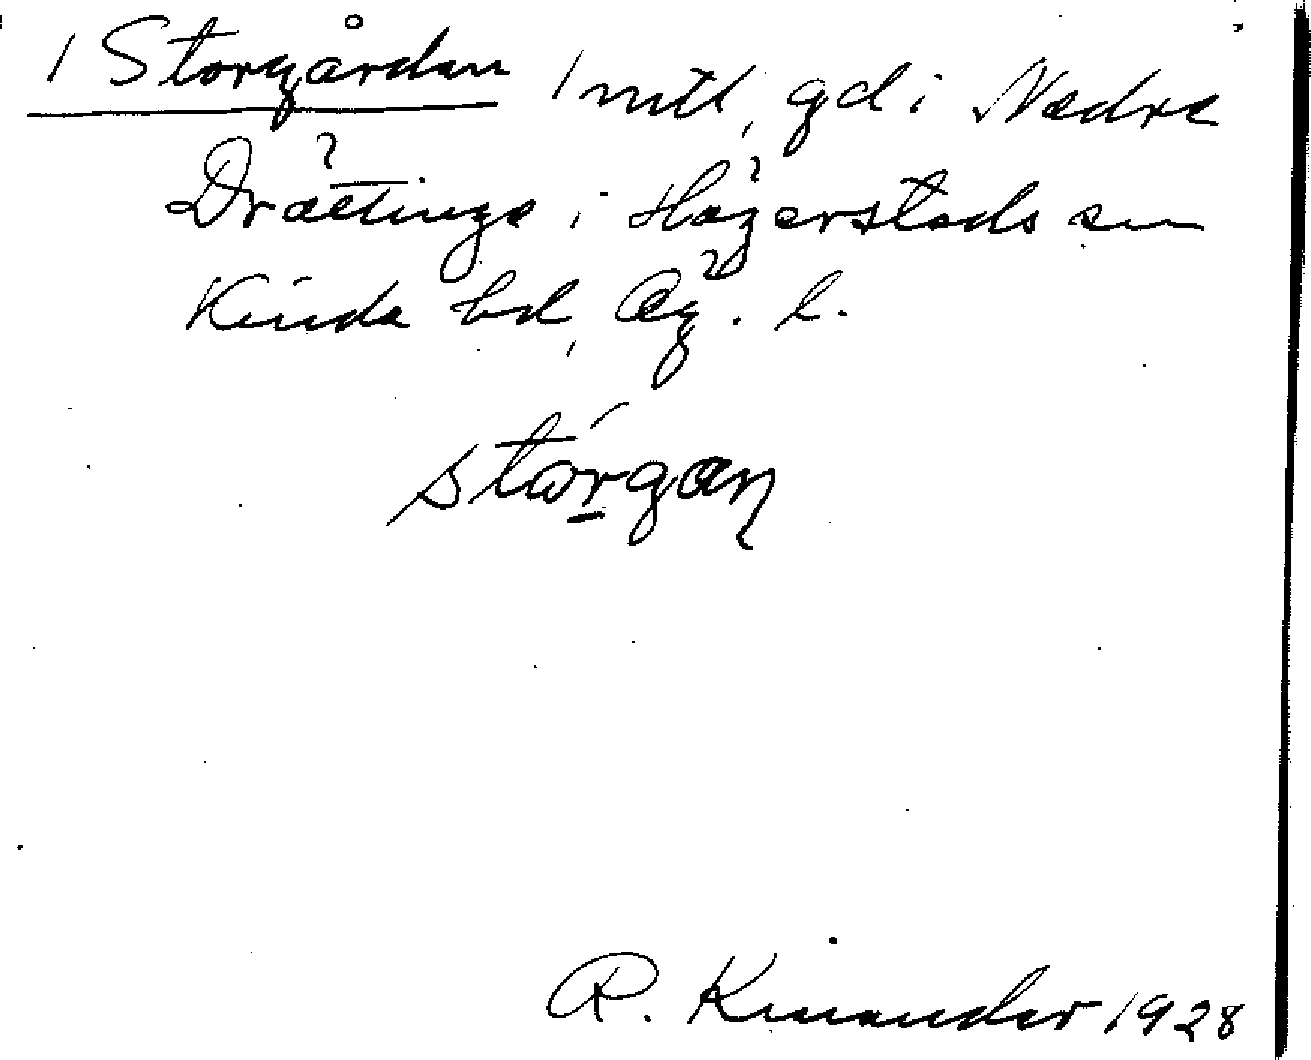 1 Storgården 1 mtl, gd i Nedre
Drättinge i Hägerstads sn
Kinda hd, Ög. l.
stó̱rgan
R. Kinander 1928